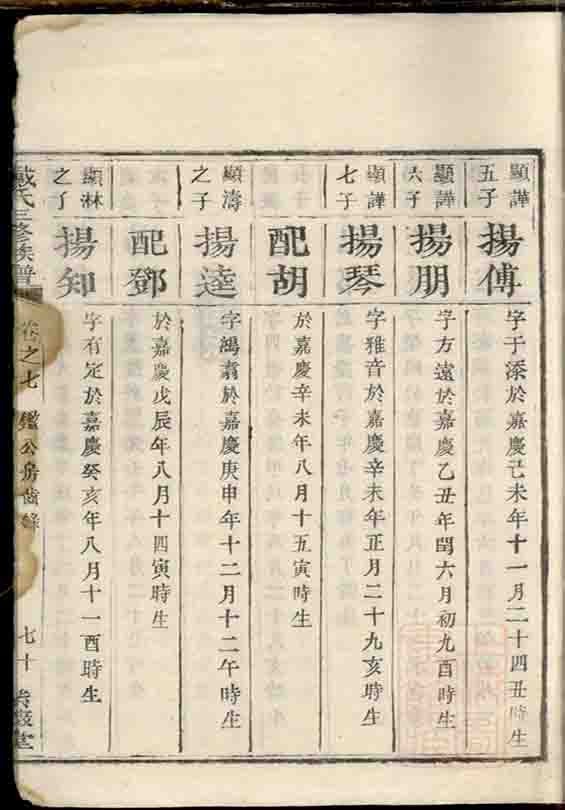 顯譁五子
揚傅
字于添於嘉慶己未年十一月二十四丑時生
顯譁六子
揚朋
字方遠於嘉慶乙丑年閏六月初九酉時生
顯譁七子
揚琴
字雅音於嘉慶辛未年正月二十九亥時生
配胡
於嘉慶辛未年八月十五寅時生
顯濤之子
揚逵
字鴻肅於嘉慶庚申年十二月十二午時生
配鄧
於嘉慶戊辰年八月十四寅時生
顯淋之子
揚知
字有定於嘉慶癸亥年八月十一酉時生
戴氏三修族譜 卷之七 鑑公房齒錄 七十 堂